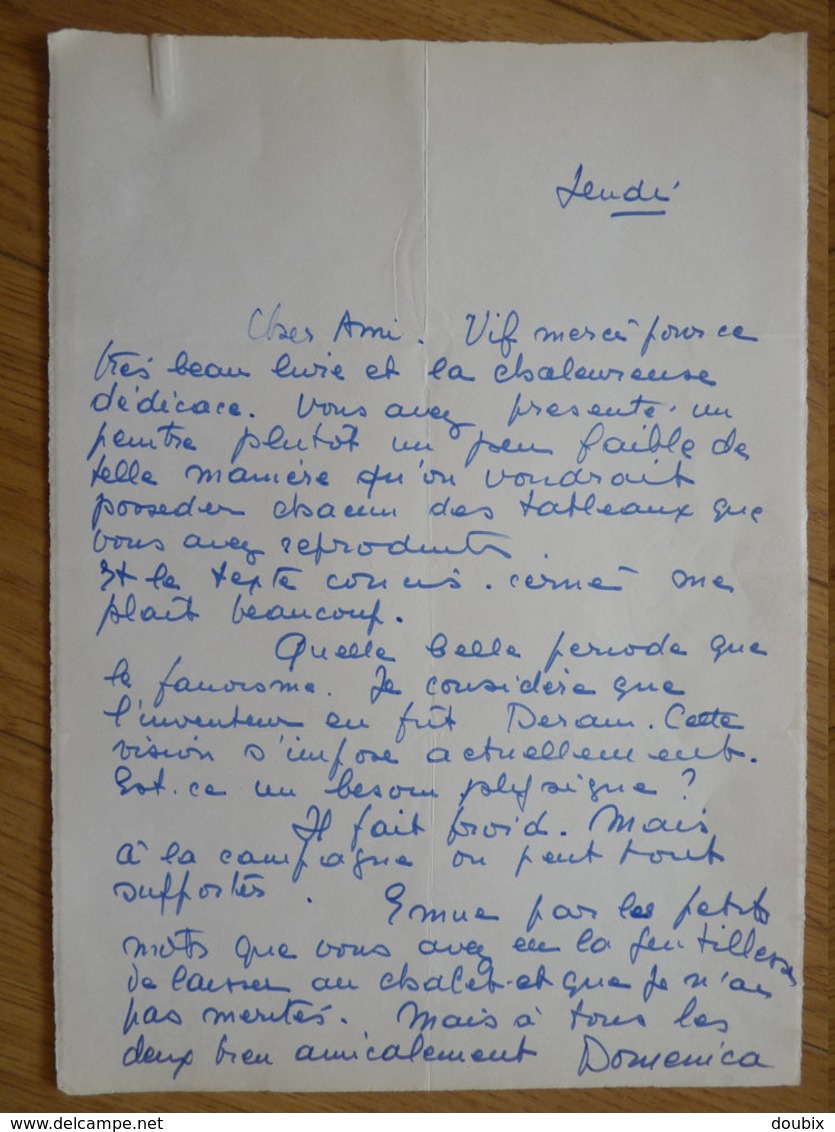 Jeudi
Cher Ami. Vif merci pour ce
très beau livre et la chaleureuse
dédicace. Vous avez présenté un
peintre plutôt un peu faible de
telle manière qu'on voudrait
posseder chacun des tableaux que
vous avez reproduits
Et le texte concis. cerné me
plaît beaucoup.
Quelle belle periode que
le fauvisme. Je considère que
l'inventeur en fût Derain. Cette
vision s'impose actuellement.
Est-ce un besoin physique ?
Il fait froid. Mais
à la campagne on peut tout
supporter.
Emue par les petits
mots que vous avez eu la gentillesse
de laisser au chalet et que je n'ai
pas merités. Mais à tous les
deux bien amicalement Domenica
delcampe.net
doubix